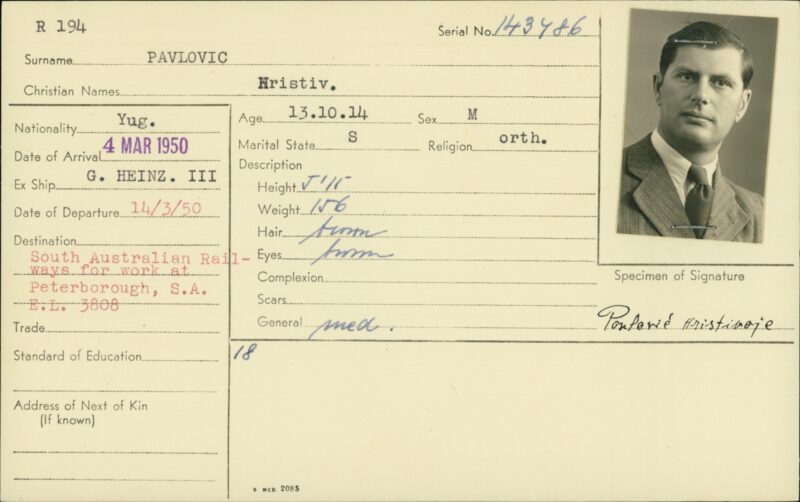 R 194
Serial No. 143786
Surname PAVLOVIC
Christian Names Hristiv.
Nationality Yug.
Date of Arrival 4 MAR 1950
Ex Ship G. HEINZ. III
Date of Departure 14/3/50
Destination
South Australian Rail-
ways for work at
Peterborough, S.A.
E.L. 3808
Trade
Standard of Education
Address of Next of Kin
(If known)
Age 13.10.14 Sex M
Marital State S Religion orth.
Description
Height 5'11
Weight 156
Hair brown
Eyes brown
Complexion
Scars
General med.
18
Specimen of Signature
Pavlović Hristivoje
MCD. 2085